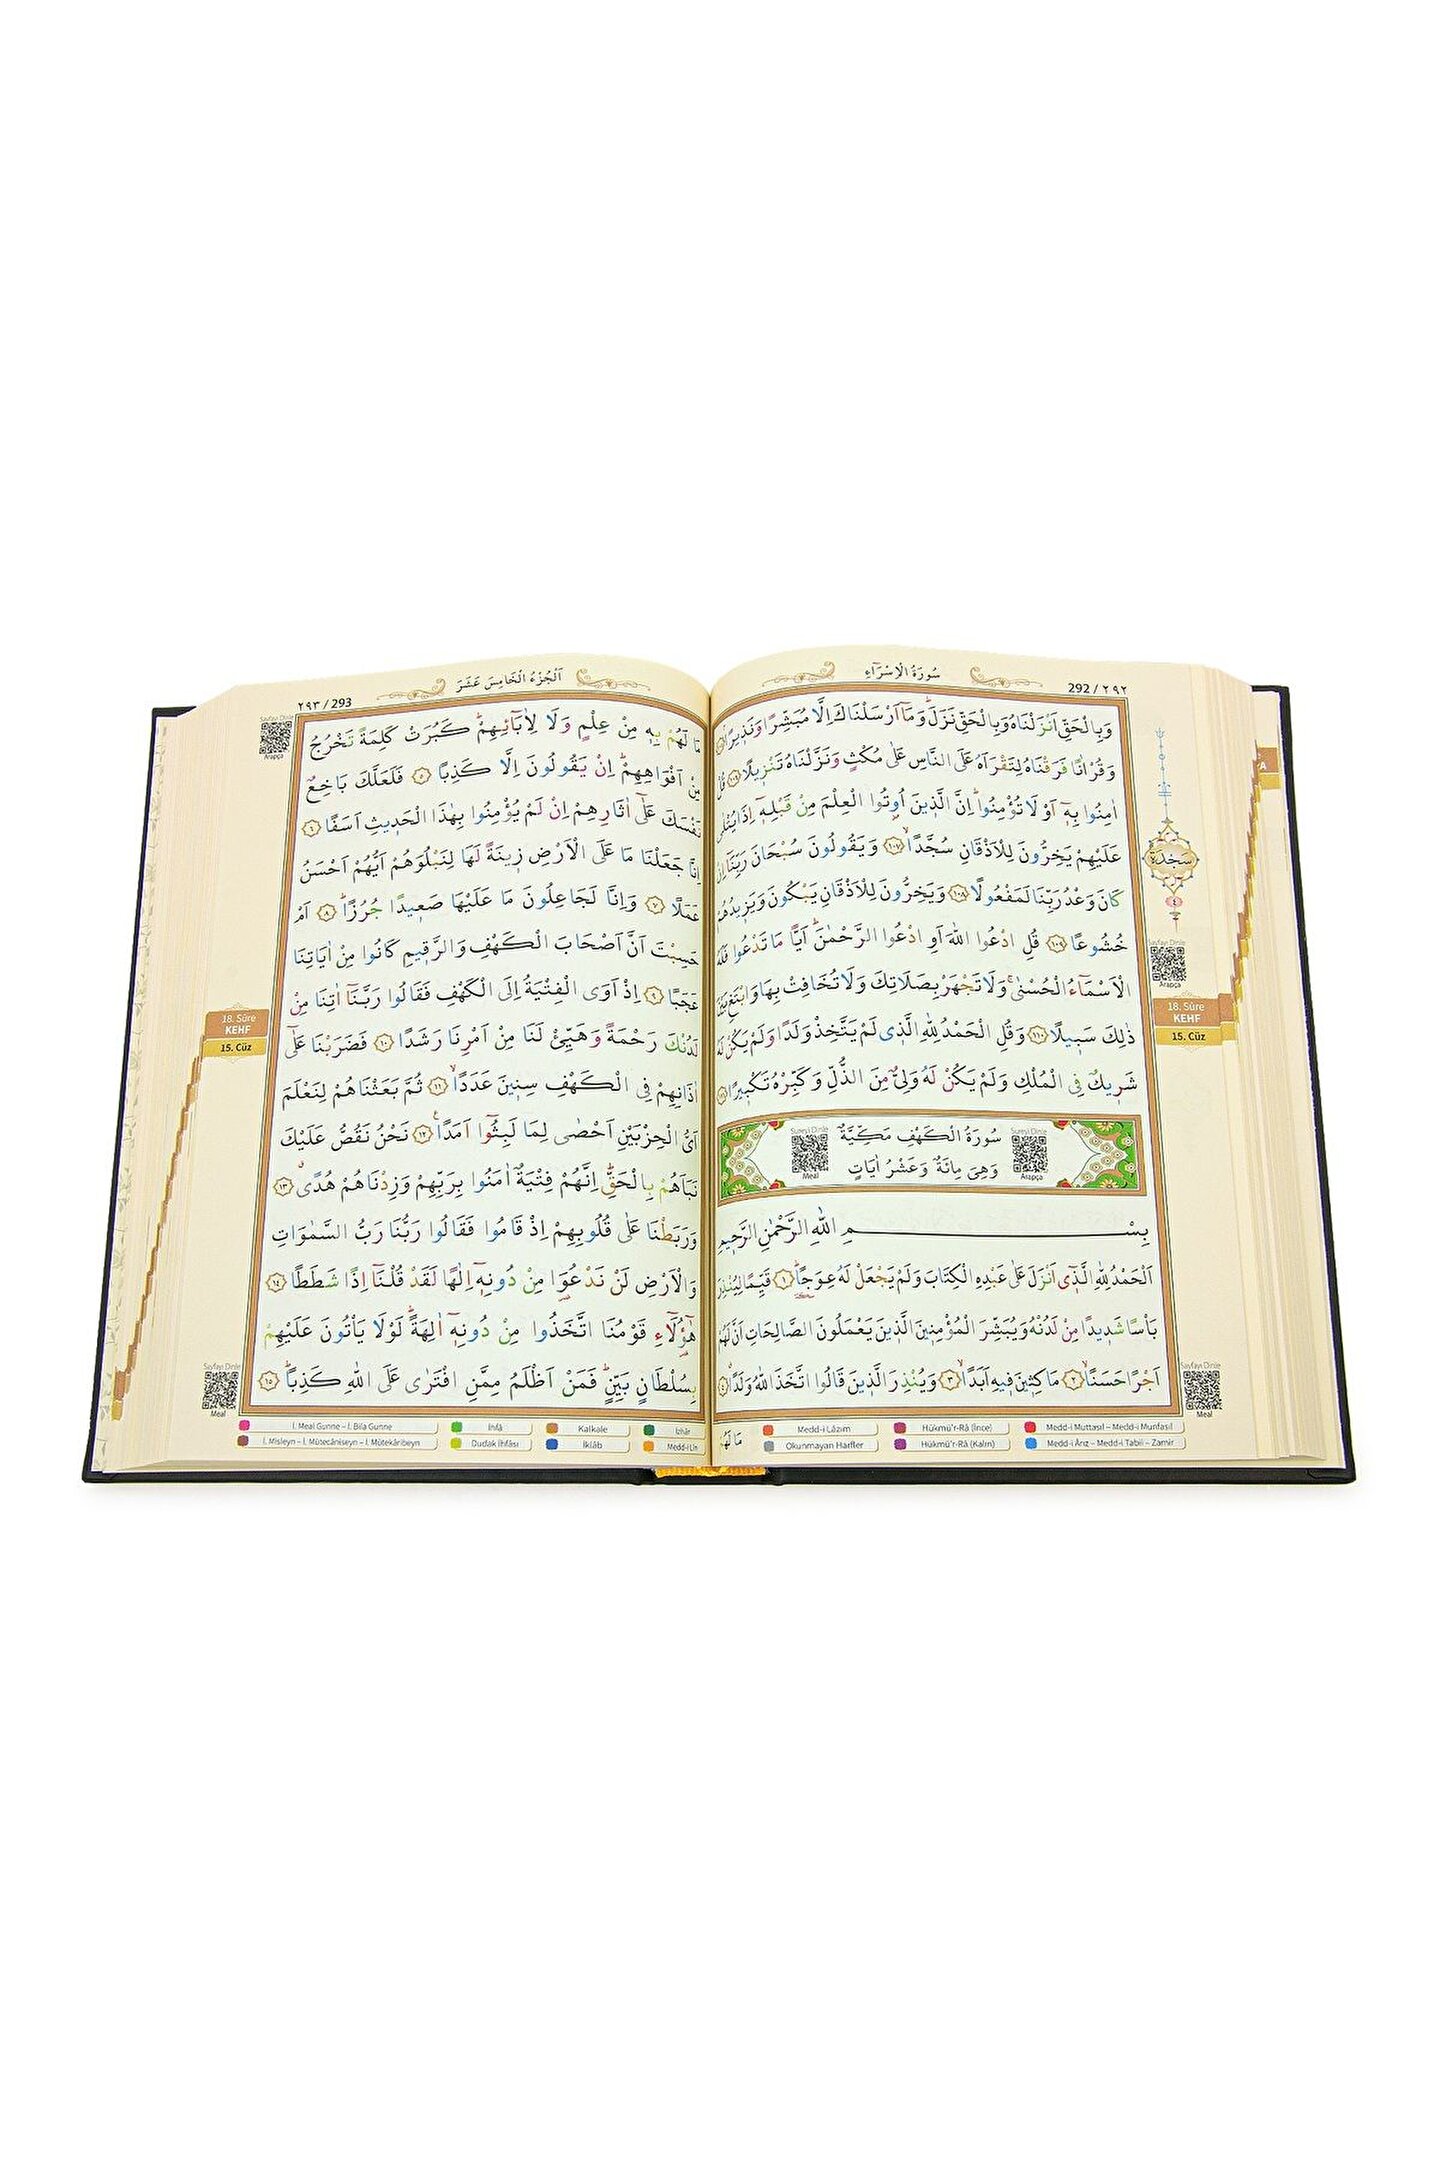 سُورَةُ الْاِسْرَٓاءِ
292 / ٢٩٢
وَبِالْحَقِّ اَنْزَلْنَاهُ وَبِالْحَقِّ نَزَلَۜ وَمَٓا اَرْسَلْنَاكَ اِلَّا مُبَشِّرًا وَنَذ۪يرًاۢ
وَقُرْاٰنًا فَرَقْنَاهُ لِتَقْرَاَهُ عَلَى النَّاسِ عَلٰى مُكْثٍ وَنَزَّلْنَاهُ تَنْز۪يلًا ١٠٦ قُلْ
اٰمِنُوا بِه۪ٓ اَوْ لَا تُؤْمِنُواۜ اِنَّ الَّذ۪ينَ اُو۫تُوا الْعِلْمَ مِنْ قَبْلِه۪ٓ اِذَا يُتْلٰى
عَلَيْهِمْ يَخِرُّونَ لِلْاَذْقَانِ سُجَّدًاۙ ١٠٧ وَيَقُولُونَ سُبْحَانَ رَبِّنَٓا اِنْ
كَانَ وَعْدُ رَبِّنَا لَمَفْعُولًا ١٠٨ وَيَخِرُّونَ لِلْاَذْقَانِ يَبْكُونَ وَيَز۪يدُهُمْ
خُشُوعًا ١٠٩ قُلِ ادْعُوا اللّٰهَ اَوِ ادْعُوا الرَّحْمٰنَۜ اَيًّا مَا تَدْعُوا فَلَهُ
الْاَسْمَٓاءُ الْحُسْنٰىۚ وَلَا تَجْهَرْ بِصَلَاتِكَ وَلَا تُخَافِتْ بِهَا وَابْتَغِ بَيْنَ
ذٰلِكَ سَب۪يلًا ١١٠ وَقُلِ الْحَمْدُ لِلّٰهِ الَّذ۪ي لَمْ يَتَّخِذْ وَلَدًا وَلَمْ يَكُنْ لَهُ
شَر۪يكٌ فِي الْمُلْكِ وَلَمْ يَكُنْ لَهُ وَلِيٌّ مِنَ الذُّلِّ وَكَبِّرْهُ تَكْب۪يرًا
سُورَةُ الْكَهْفِ مَكِّيَّةٌ
وَهِيَ مِائَةٌ وَعَشْرُ اٰيَاتٍ
Sureyi Dinle
Meal
Sureyi Dinle
Arapça
بِسْمِ اللّٰهِ الرَّحْمٰنِ الرَّح۪يمِ
اَلْحَمْدُ لِلّٰهِ الَّذ۪ٓي اَنْزَلَ عَلٰى عَبْدِهِ الْكِتَابَ وَلَمْ يَجْعَلْ لَهُ عِوَجًاۜ ١ قَيِّمًا لِيُنْذِرَ
بَأْسًا شَد۪يدًا مِنْ لَدُنْهُ وَيُبَشِّرَ الْمُؤْمِن۪ينَ الَّذ۪ينَ يَعْمَلُونَ الصَّالِحَاتِ اَنَّ لَهُمْ
اَجْرًا حَسَنًاۙ ٢ مَاكِث۪ينَ ف۪يهِ اَبَدًاۙ ٣ وَيُنْذِرَ الَّذ۪ينَ قَالُوا اتَّخَذَ اللّٰهُ وَلَدًاۗ ٤
مَا لَهُمْ
سَجْدَة
Sayfayı Dinle
Arapça
18. Sûre
KEHF
15. Cüz
Sayfayı Dinle
Meal
Medd-i Lâzım
Hükmü'r-Râ (İnce)
Medd-i Muttasıl – Medd-i Munfasıl
Okunmayan Harfler
Hükmü'r-Râ (Kalın)
Medd-i Ârız – Medd-i Tabii – Zamir
اَلْجُزْءُ الْخَامِسَ عَشَرَ
٢٩٣ / 293
مَا لَهُمْ بِه۪ مِنْ عِلْمٍ وَلَا لِاٰبَٓائِهِمْۜ كَبُرَتْ كَلِمَةً تَخْرُجُ
مِنْ اَفْوَاهِهِمْۜ اِنْ يَقُولُونَ اِلَّا كَذِبًا ٥ فَلَعَلَّكَ بَاخِعٌ
نَفْسَكَ عَلٰٓى اٰثَارِهِمْ اِنْ لَمْ يُؤْمِنُوا بِهٰذَا الْحَد۪يثِ اَسَفًا ٦
اِنَّا جَعَلْنَا مَا عَلَى الْاَرْضِ ز۪ينَةً لَهَا لِنَبْلُوَهُمْ اَيُّهُمْ اَحْسَنُ
عَمَلًا ٧ وَاِنَّا لَجَاعِلُونَ مَا عَلَيْهَا صَع۪يدًا جُرُزًاۜ ٨ اَمْ
حَسِبْتَ اَنَّ اَصْحَابَ الْكَهْفِ وَالرَّق۪يمِ كَانُوا مِنْ اٰيَاتِنَا
عَجَبًا ٩ اِذْ اَوَى الْفِتْيَةُ اِلَى الْكَهْفِ فَقَالُوا رَبَّنَٓا اٰتِنَا مِنْ
لَدُنْكَ رَحْمَةً وَهَيِّئْ لَنَا مِنْ اَمْرِنَا رَشَدًا ١٠ فَضَرَبْنَا عَلٰٓى
اٰذَانِهِمْ فِي الْكَهْفِ سِن۪ينَ عَدَدًاۙ ١١ ثُمَّ بَعَثْنَاهُمْ لِنَعْلَمَ
اَيُّ الْحِزْبَيْنِ اَحْصٰى لِمَا لَبِثُٓوا اَمَدًا۟ ١٢ نَحْنُ نَقُصُّ عَلَيْكَ
نَبَاَهُمْ بِالْحَقِّۜ اِنَّهُمْ فِتْيَةٌ اٰمَنُوا بِرَبِّهِمْ وَزِدْنَاهُمْ هُدًىۗ ١٣
وَرَبَطْنَا عَلٰى قُلُوبِهِمْ اِذْ قَامُوا فَقَالُوا رَبُّنَا رَبُّ السَّمٰوَاتِ
وَالْاَرْضِ لَنْ نَدْعُوَ۬ا مِنْ دُونِه۪ٓ اِلٰهًا لَقَدْ قُلْنَٓا اِذًا شَطَطًا ١٤
هٰٓؤُ۬لَٓاءِ قَوْمُنَا اتَّخَذُوا مِنْ دُونِه۪ٓ اٰلِهَةًۜ لَوْلَا يَأْتُونَ عَلَيْهِمْ
بِسُلْطَانٍ بَيِّنٍۜ فَمَنْ اَظْلَمُ مِمَّنِ افْتَرٰى عَلَى اللّٰهِ كَذِبًاۜ ١٥
Sayfayı Dinle
Arapça
18. Sûre
KEHF
15. Cüz
Sayfayı Dinle
Meal
İ. Meal Gunne – İ. Bila Gunne
İhfâ
Kalkale
İzhâr
İ. Misleyn – İ. Mütecâniseyn – İ. Mütekâribeyn
Dudak İhfâsı
İklâb
Medd-i Lin